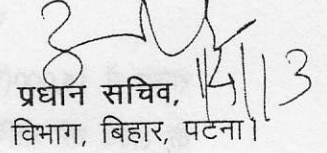 प्रधान सचिव,
विभाग, बिहार, पटना।